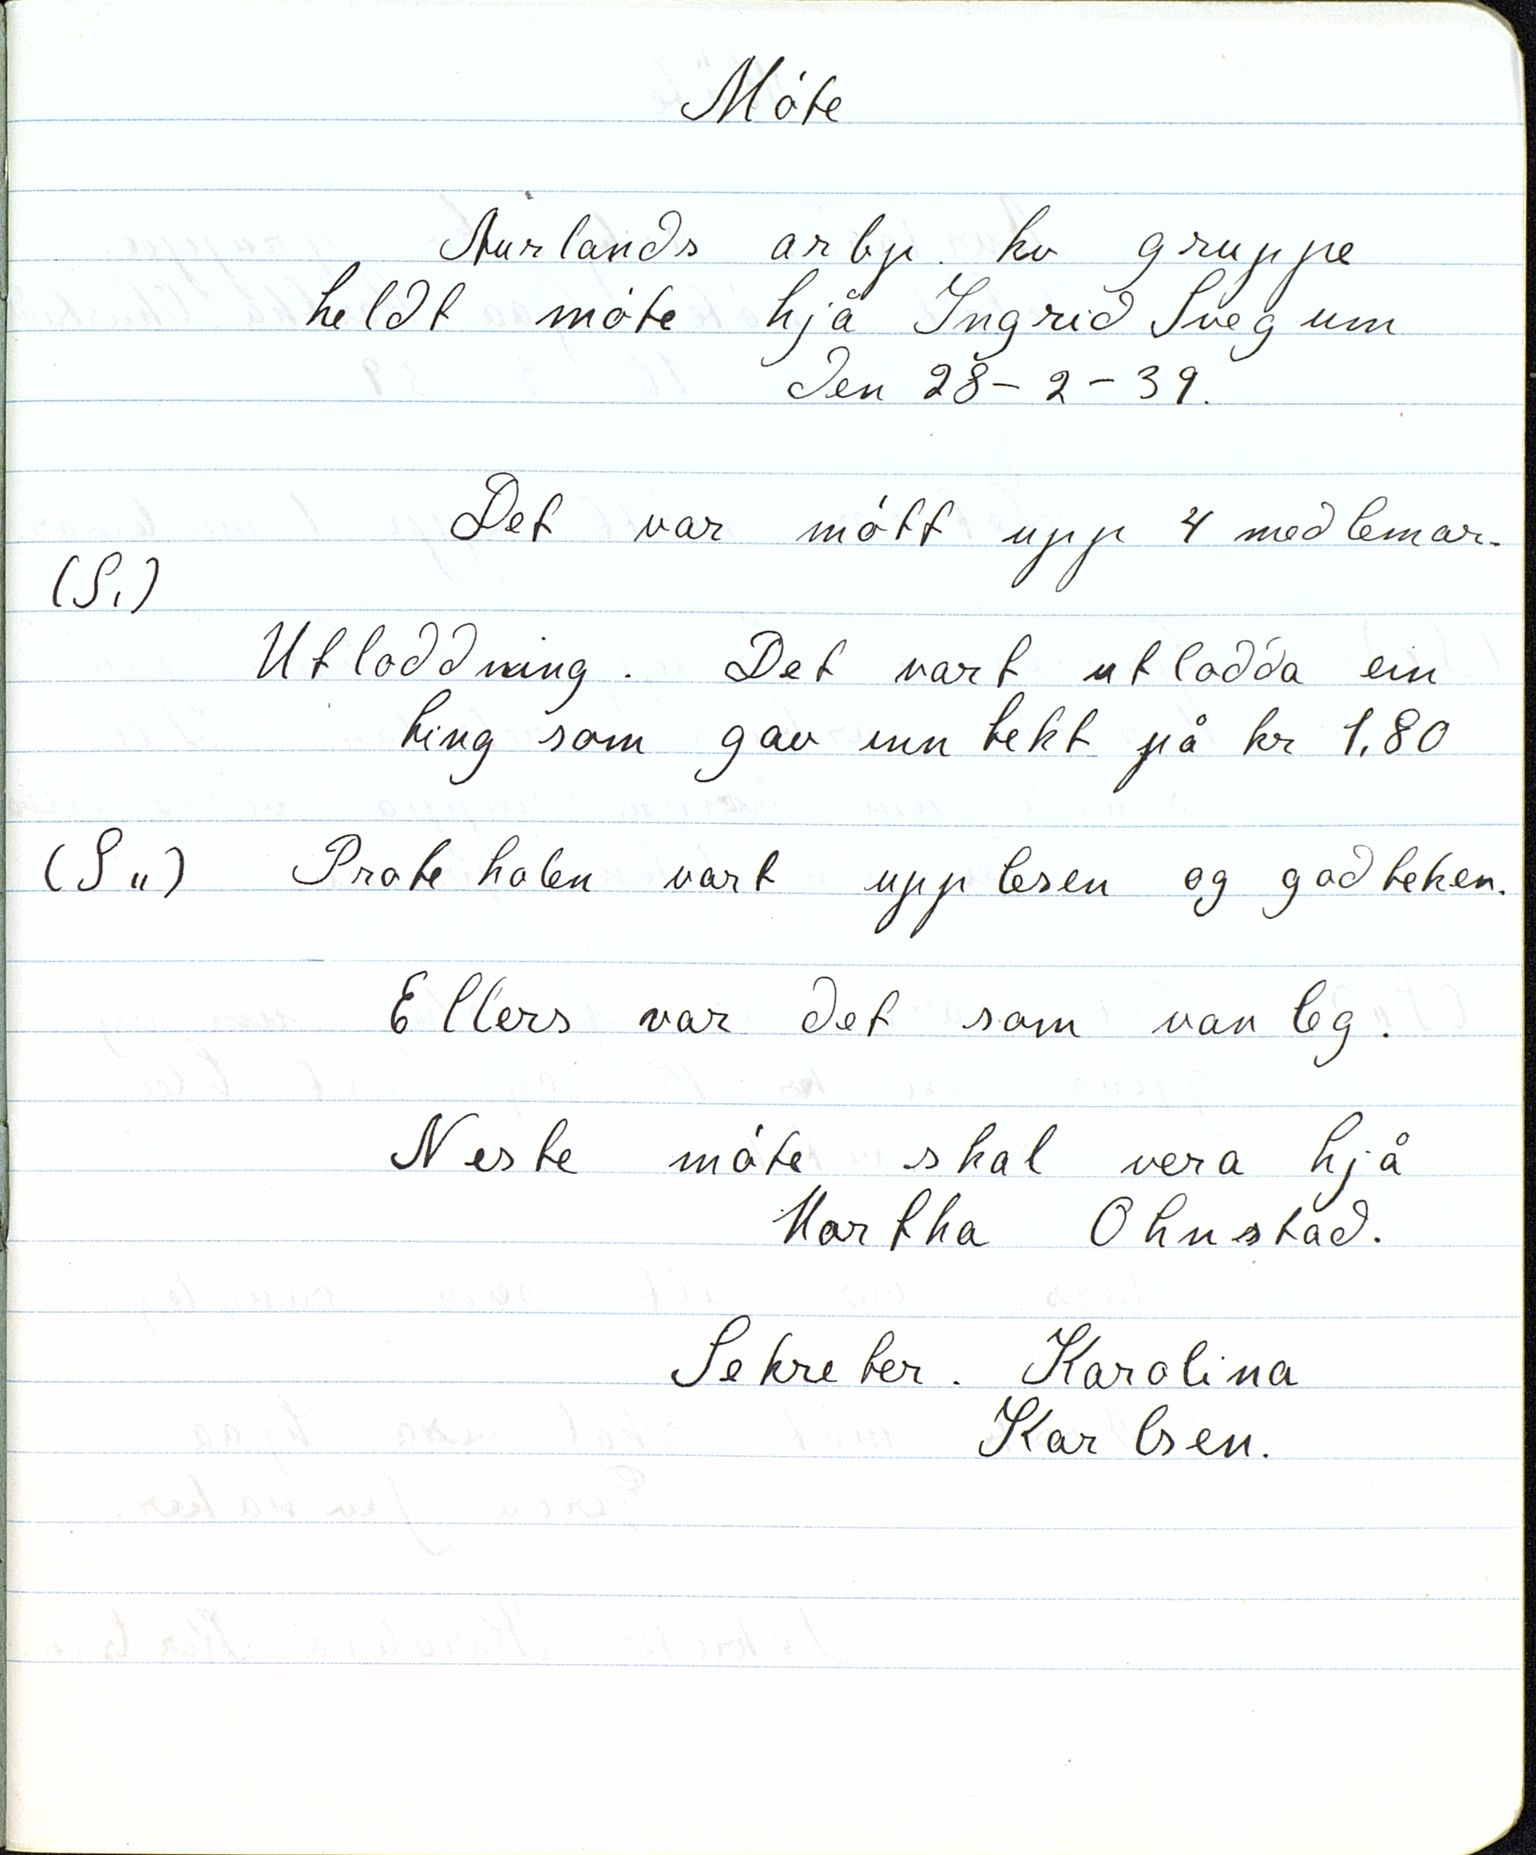 Móte
Aurlands arbp. kv gruppe
heldt móte hjå Ingrid Svegum
den 28-2-39.
Det var mótt upp 4 medlemar.
(S,)
Utloddning. Det vart utlodda ein
ting som gav inn tekt på kr 1,80
(S,,) Proteholen vart upplesen og godteken.
Ellers var det som vanleg.
Neste móte skal vera hjå
Martha Ohnstad.
Sekreter. Karolina
Karlsen.